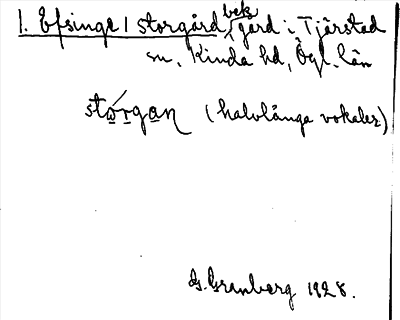 1. Efsinge / storgård, bek gård i Tjärstad
sn, Kinda hd, Ögl. län
stórgan (halvlånga vokaler)
G. Granberg 1928.